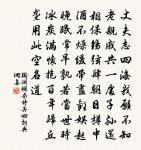 丈夫志四海我願不知
老親戚共一處子孫還
相保觴絃肆朝日樽中
酒不燥緩帶盡歡娛起
晚眠常早孰若當世時
冰炭滿懷抱百年歸丘
壟用此空名道
陶淵明雜詩其四